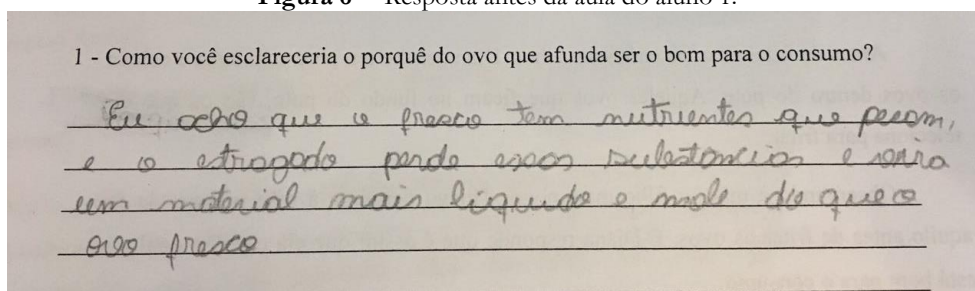 Figura 6 – Resposta antes da aula do aluno 1.
1 - Como você esclareceria o porquê do ovo que afunda ser o bom para o consumo?
Eu acho que o fresco tem nutrientes que pesam,
e o estragado perde essas substâncias e
um material mais liquido e mole do que o
ovo fresco